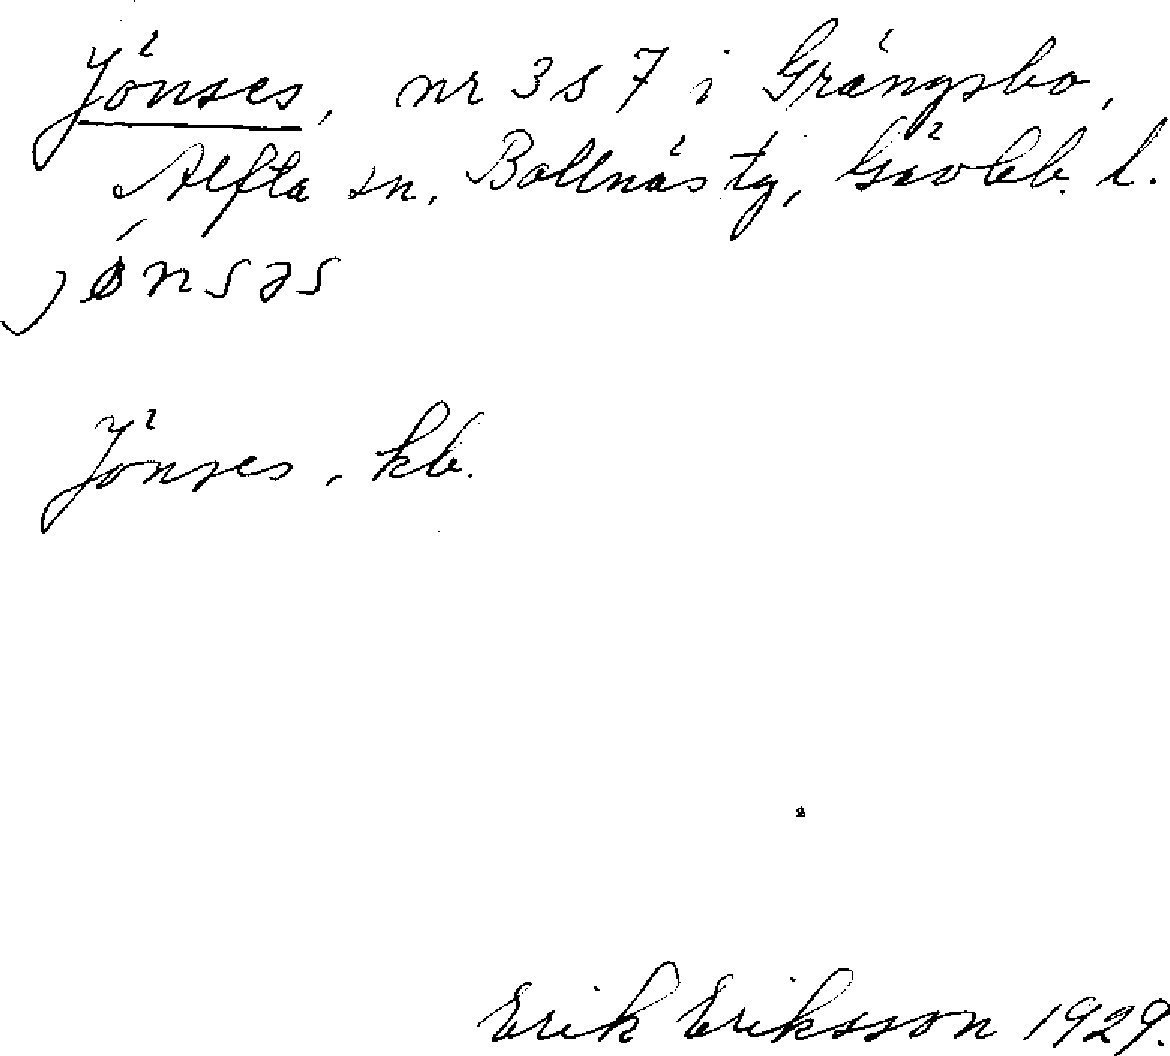 Jönses, nr 3 & 7 i Grängsbo,
Alfta sn, Bollnäs tg, Gävleb. l.
jǿnsəs
Jönses, kb.
Erik Eriksson 1929.